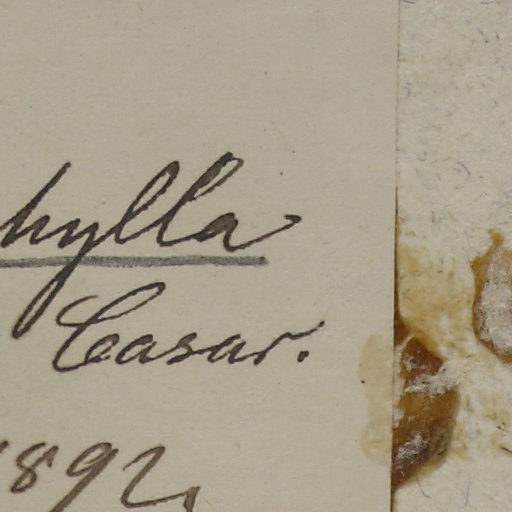 hylla
Casar.
1892,